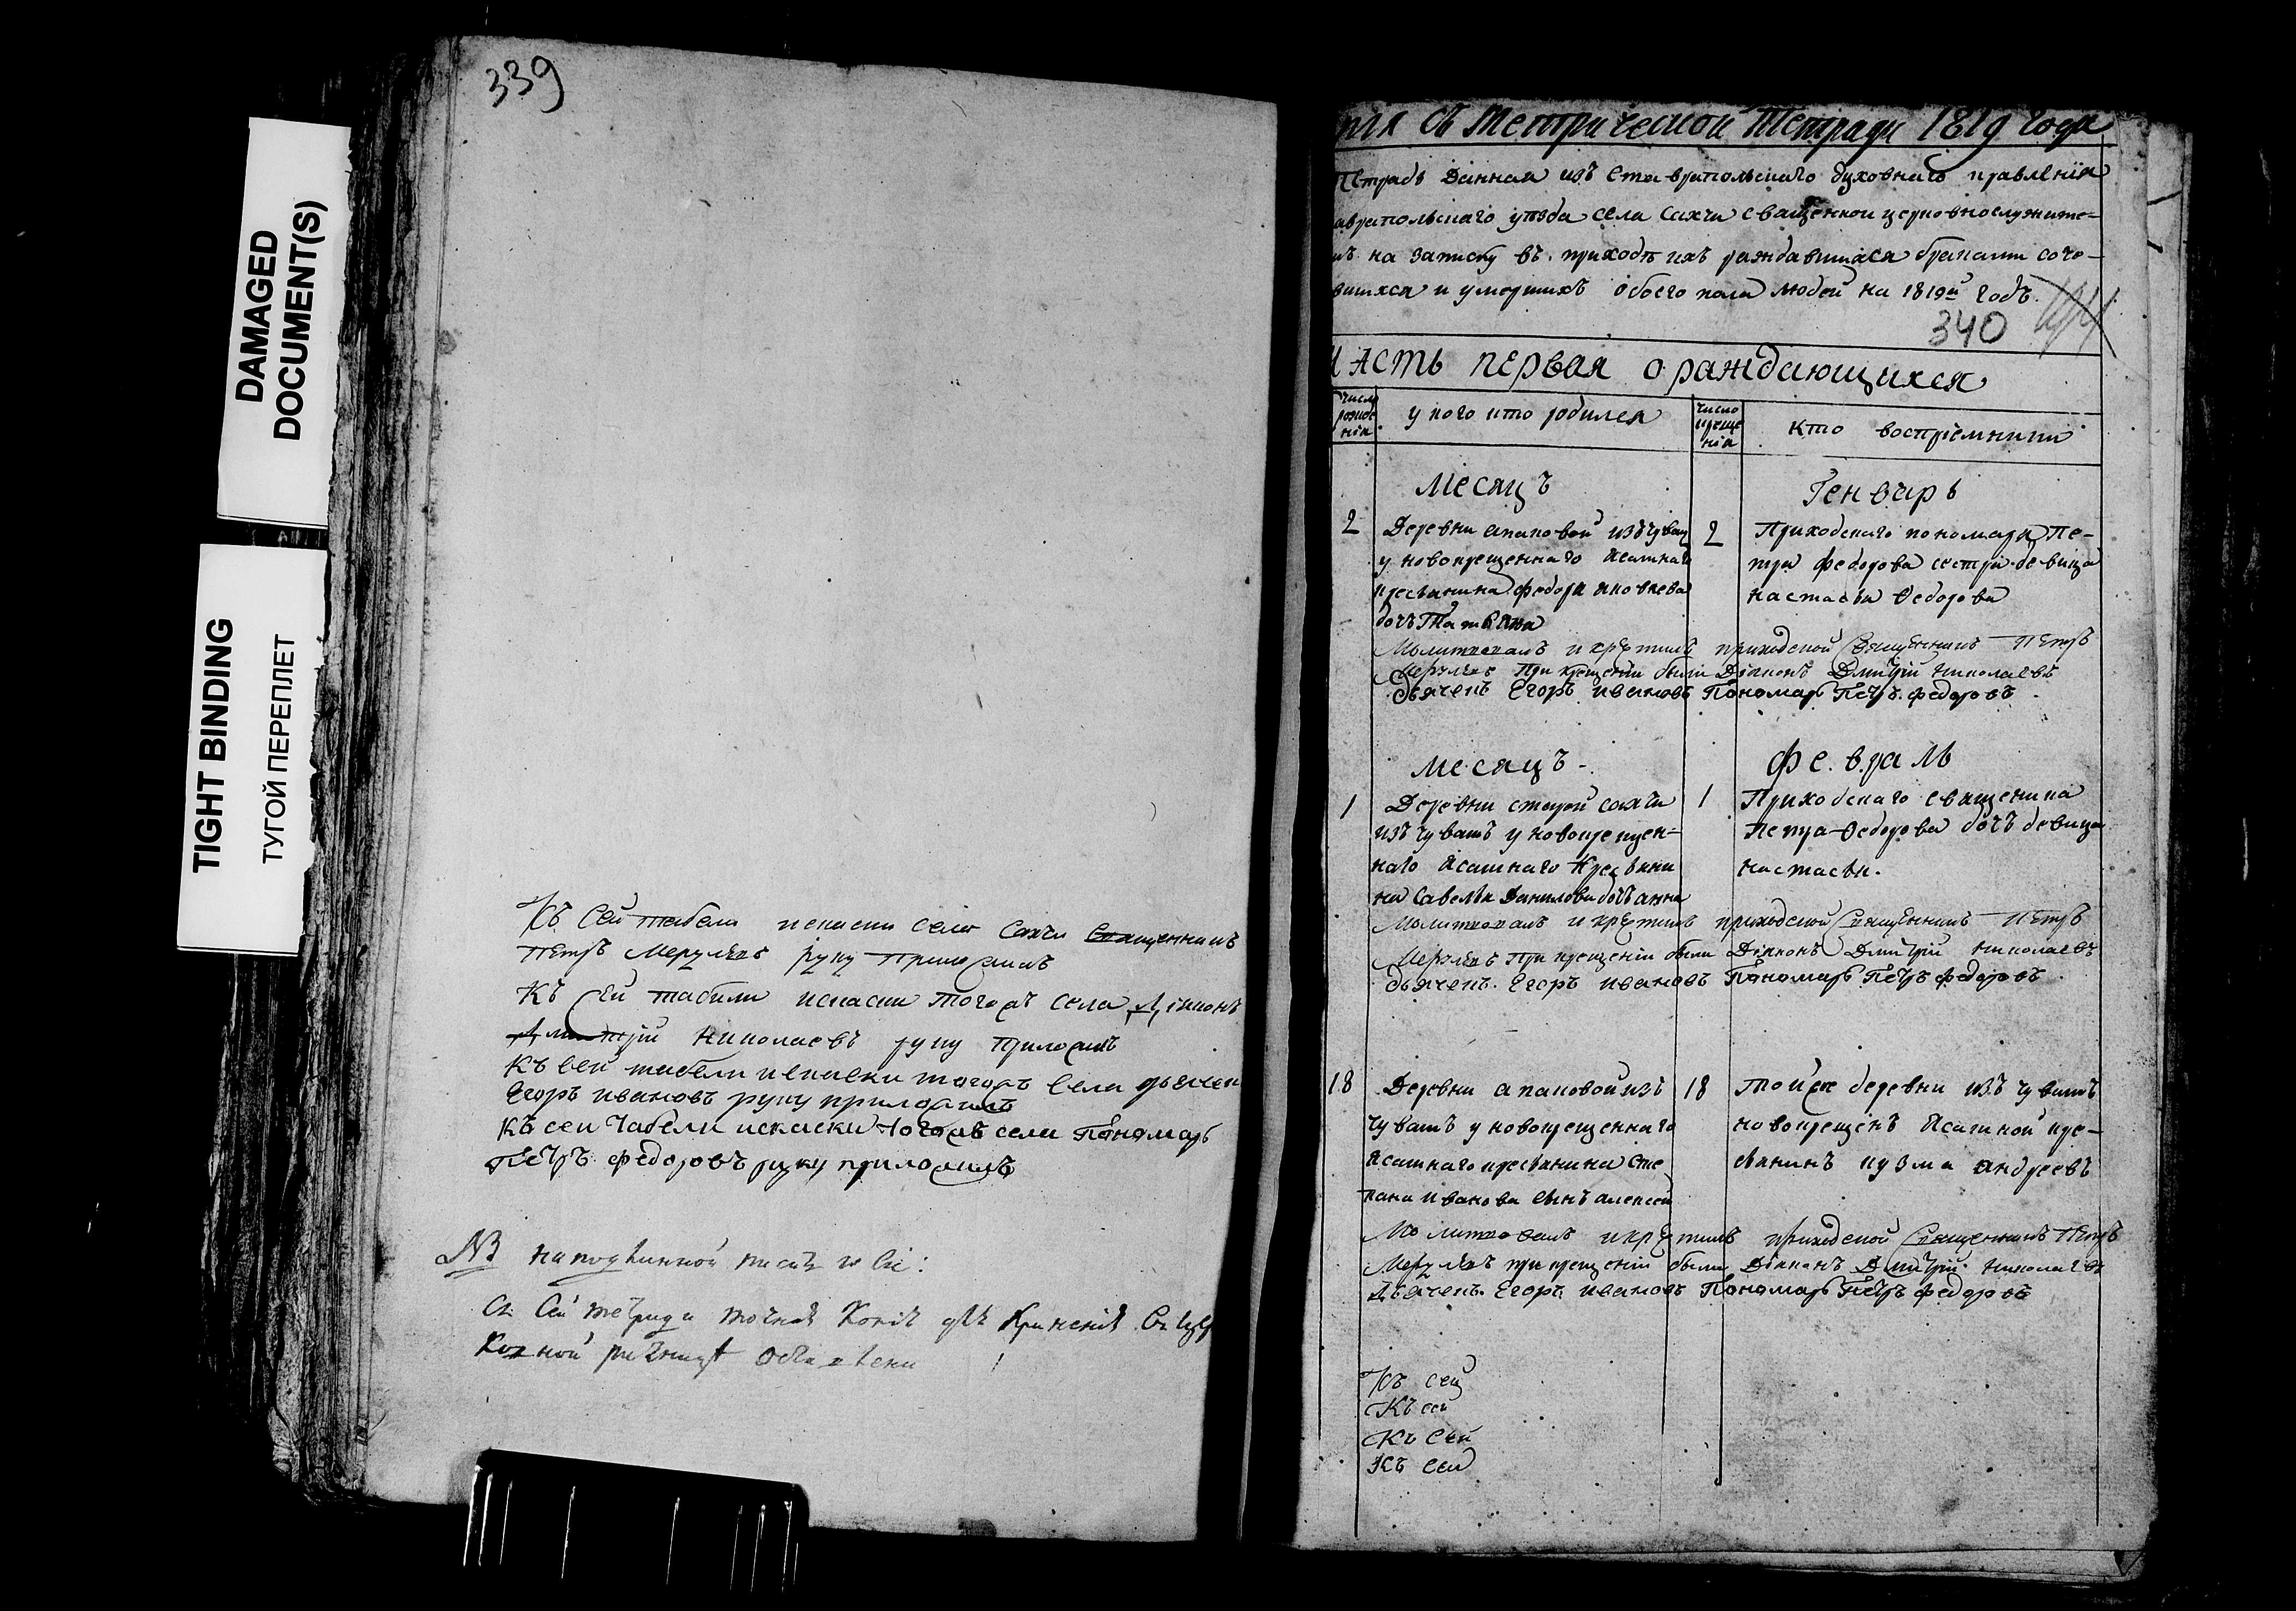 DAMAGED
DOCUMENT(S)
TIGHT BINDING
ТУГОЙ ПЕРЕПЛЕТ
339
Къ сей табели и скаски села Сахчи Священникъ
Петръ Меркульевъ руку приложилъ
Къ сей табели и скаски тогожъ села Діяконъ
Дмитрій Николаевъ руку приложилъ
Къ сей табели и скаски тогожъ села дьячекъ
Егоръ Ивановъ руку приложилъ
Къ сей табели и скаски тогожъ села Пономарь
Петръ Федоровъ руку приложилъ
NB на подлинной
Съ сей тетради точная копія для
пія съ Метрической Тетради 1819 года
Тетрадь Данная изъ Ставропольскаго духовнаго правленія
авропольскаго уѣзда села Сахчи священной церковнослужите-
мъ на записку въ приходѣ ихъ раждавшихся браками соче-
вшихся и умершихъ обоего пола людей на 1819й годъ.
340
Часть первая о раждающихся
число рожденія
у кого кто родился
число крещенія
кто воспріемники
Месяцъ
Генварь
2
Деревни Апаковой изъ чуваш
у новокрещеннаго Ясашнаго
крестьянина Федора Яковлева
дочь Татьяна
2
Приходскаго пономаря Пе-
тра Федорова сестра девица
Настасья Федорова
Молитвовалъ и крѣтилъ приходской Священникъ Петръ
Меркульевъ При крещеніи были Діяконъ Дмитрій Николаевъ
Дьячекъ Егоръ Ивановъ Пономарь Петръ Федоровъ
Месяцъ
Февраль
1
Деревни старой Сахчи
изъ чувашъ у новокрещен-
наго Ясашнаго Крестьяни
на Савелья Данилова дочь Анна
1
Приходскаго священника
Петра Федорова дочь девица
Настасья.
Молитвовалъ и крѣтилъ приходской Священникъ Петръ
Меркульевъ При крещеніи были Діяконъ Дмитрій Николаевъ
дьячекъ Егоръ Ивановъ Пономарь Петръ Федоровъ
18
Деревни Апаковой изъ
чувашъ у новокрещеннаго
Ясашнаго крестьянина Сте
пана Иванова сынъ Алексей
18
той же деревни изъ чувашъ
новокрещенъ Ясашной кре-
стьянинъ Кузма Андреевъ
Молитвовалъ и крѣтилъ приходской Священникъ Петръ
Меркульевъ при крещеніи были Діяконъ Дмитрій Николаевъ
Дьячекъ Егоръ Ивановъ Пономарь Петръ Федоровъ
Къ сей
Къ сей
Къ сей
Къ сей